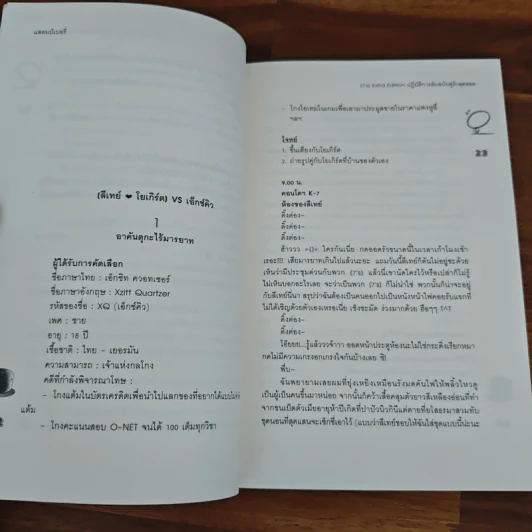 แสตมป์เบอรี่
(ลีเทย์ ❤ โยเกิร์ต) VS เอ็กซ์คิว
1
อาคันตุกะไร้มารยาท
ผู้ได้รับการคัดเลือก
ชื่อภาษาไทย : เอ็กซิท ควอทเซอร์
ชื่อภาษาอังกฤษ : Xziff Quartzer
รหัสของชื่อ : XQ (เอ็กซ์คิว)
เพศ : ชาย
อายุ : 18 ปี
เชื้อชาติ : ไทย - เยอรมัน
ความสามารถ : เจ้าแห่งกลโกง
คดีที่กำลังพิจารณาโทษ :
- โกงแต้มในบัตรเครดิตเพื่อนำไปแลกของที่อยากได้แบบไม่จำกัด
แต้ม
- โกงคะแนนสอบ O-NET จนได้ 100 เต็มทุกวิชา
(7's) Extra Edition ปฏิบัติการลับฉบับคู่รักสุดแสบ
- โกงไอเทมในเกมเพื่อเอามาประมูลขายในราคาแพงหูฉี่
ฯลฯ
23
โจทย์
1. ขึ้นเตียงกับโยเกิร์ต
2. ถ่ายรูปคู่กับโยเกิร์ตที่บ้านของตัวเอง
9.00 น.
คอนโดฯ K-7
ห้องของลีเทย์
ติ๊งต่อง~
ติ๊งต่อง~
ติ๊งต่อง~
ฮ้าววว =()= ใครกันเนี่ย กดออดรัวขนาดนี้ในเวลาเก้าโมงเช้า
เรอะ!!! เสียมารยาทเกินไปแล้วนะยะ แถมวันนี้ลีเทย์ก็ดันไม่อยู่ซะด้วย
เห็นว่ามีประชุมด่วนกับพวก (7's) แล้วนี่เขานัดใครไว้หรือเปล่าก็ไม่รู้
ไม่เห็นบอกอะไรเลย จะว่าเป็นพวก (7's) ก็ไม่น่าใช่ พวกนั้นก็น่าจะอยู่
กับลีเทย์นี่นา สรุปว่าฉันต้องเป็นคนออกไปเป็นหนังหน้าไฟคอยรับแขกที่
ไม่ได้เชิญด้วยตัวเองเหรอเนี่ย เซ็งชะมัด ง่วงมากด้วย ฮือๆๆ TAT
ติ๊งต่อง~
ติ๊งต่อง~
โอ๊ยยย...รู้แล้ววจ้าาา ออดหน้าประตูห้องนะไม่ใช่กระดิ่งเรียกหมา
กดไม่มีความเกรงอกเกรงใจกันบ้างเลย ชิ!
พึ่บ~
ฉันพยายามเลยผมที่ยุ่งเหยิงเหมือนรังมดคันไฟให้พลิ้วไหวดู
เป็นผู้เป็นคนขึ้นมาหน่อย จากนั้นก็คว้าเสื้อคลุมตัวยาวสีเหลืองอ่อนที่ทำ
ชุดนอนที่สุดแสนจะเซ็กซี่เอาไว้ (แบบว่าลีเทย์ชอบให้ฉันใส่ชุดแบบนี้น่ะนะ